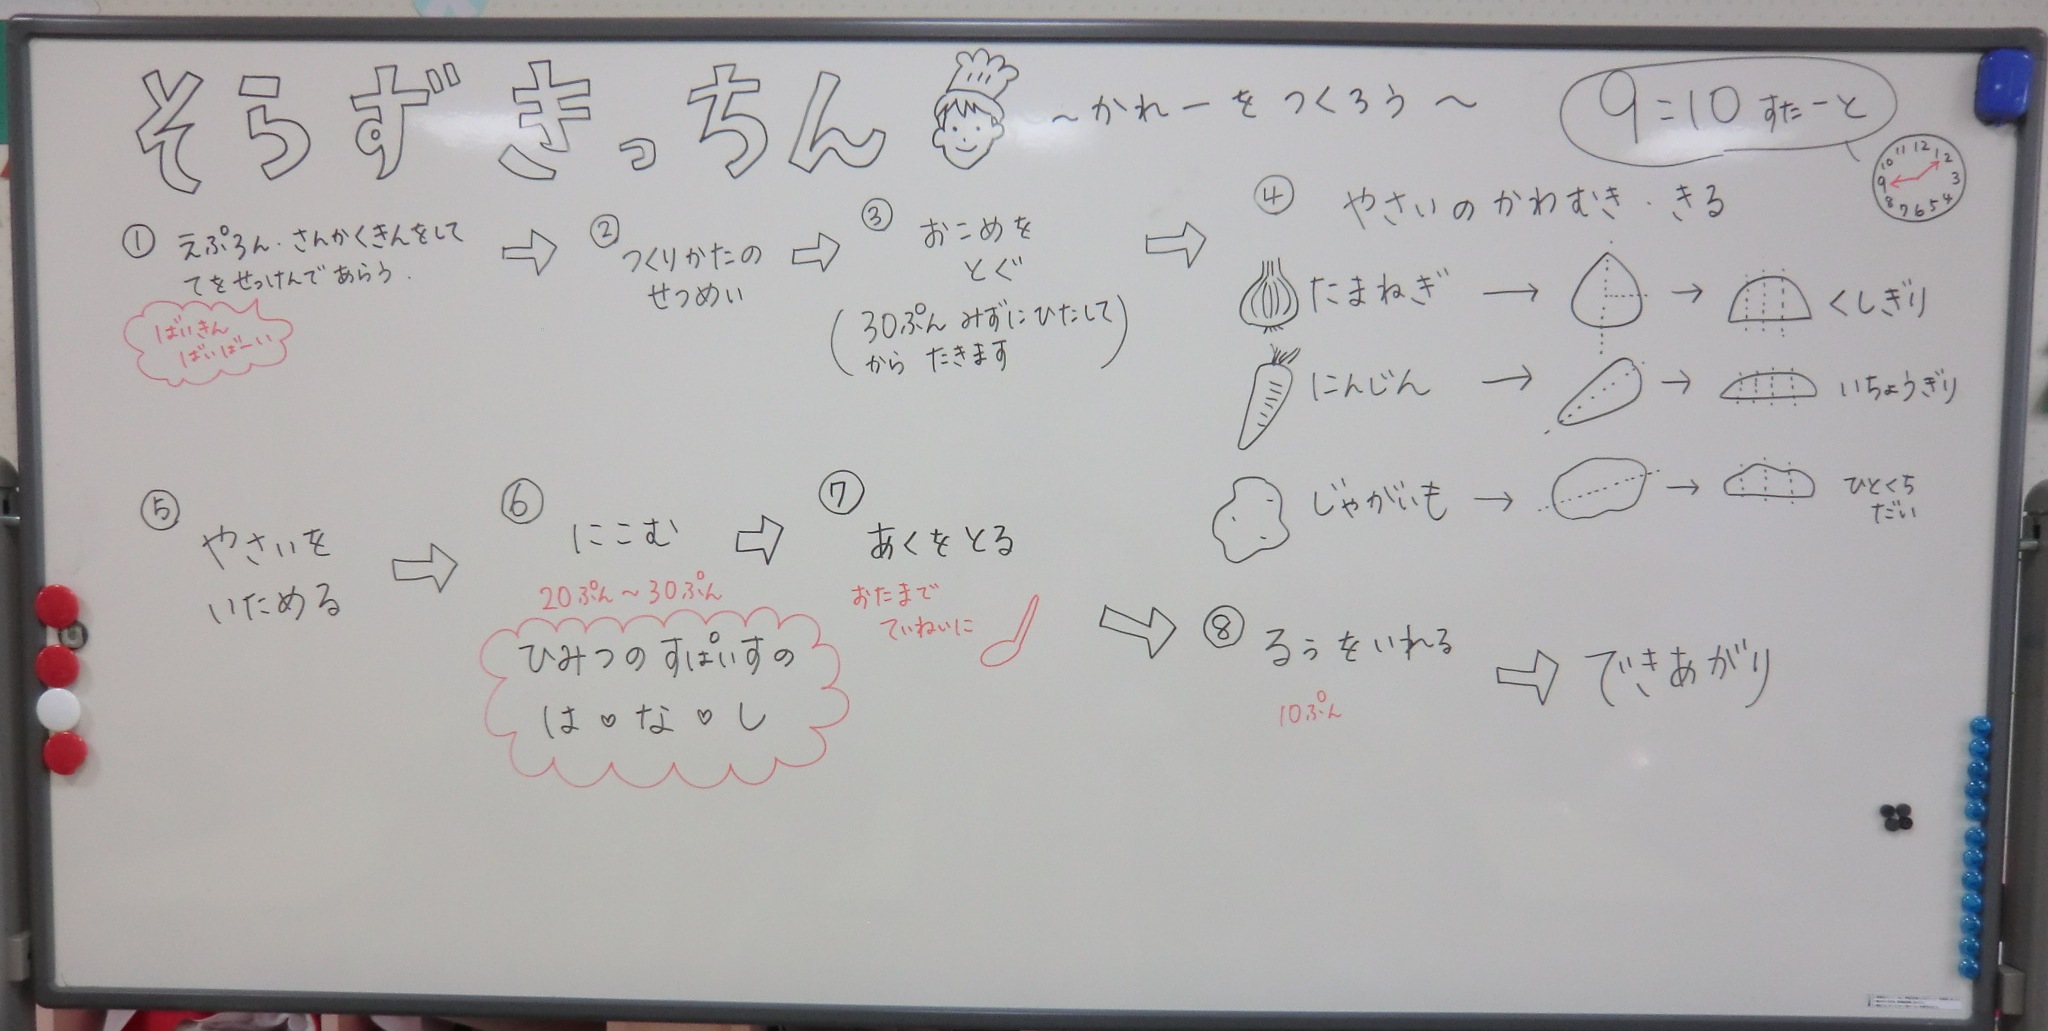 そらずきっちん ～かれーをつくろう～
9:10 すたーと
12
1
2
3
4
5
6
7
8
9
10
11
① えぷろん・さんかくきんをして
てをせっけんであらう.
ばいきん
ばいばーい
② つくりかたの
せつめい
③ おこめを
とぐ
(30ぷん みずにひたして
から たきます)
④ やさいのかわむき・きる
たまねぎ → → くしぎり
にんじん → → いちょうぎり
じゃがいも → → ひとくち
だい
⑤ やさいを
いためる
⑥ にこむ
20ぷん～30ぷん
ひみつのすぱいすの
は♡な♡し
⑦ あくをとる
おたまで
ていねいに
⑧ るぅをいれる
10ぷん
できあがり